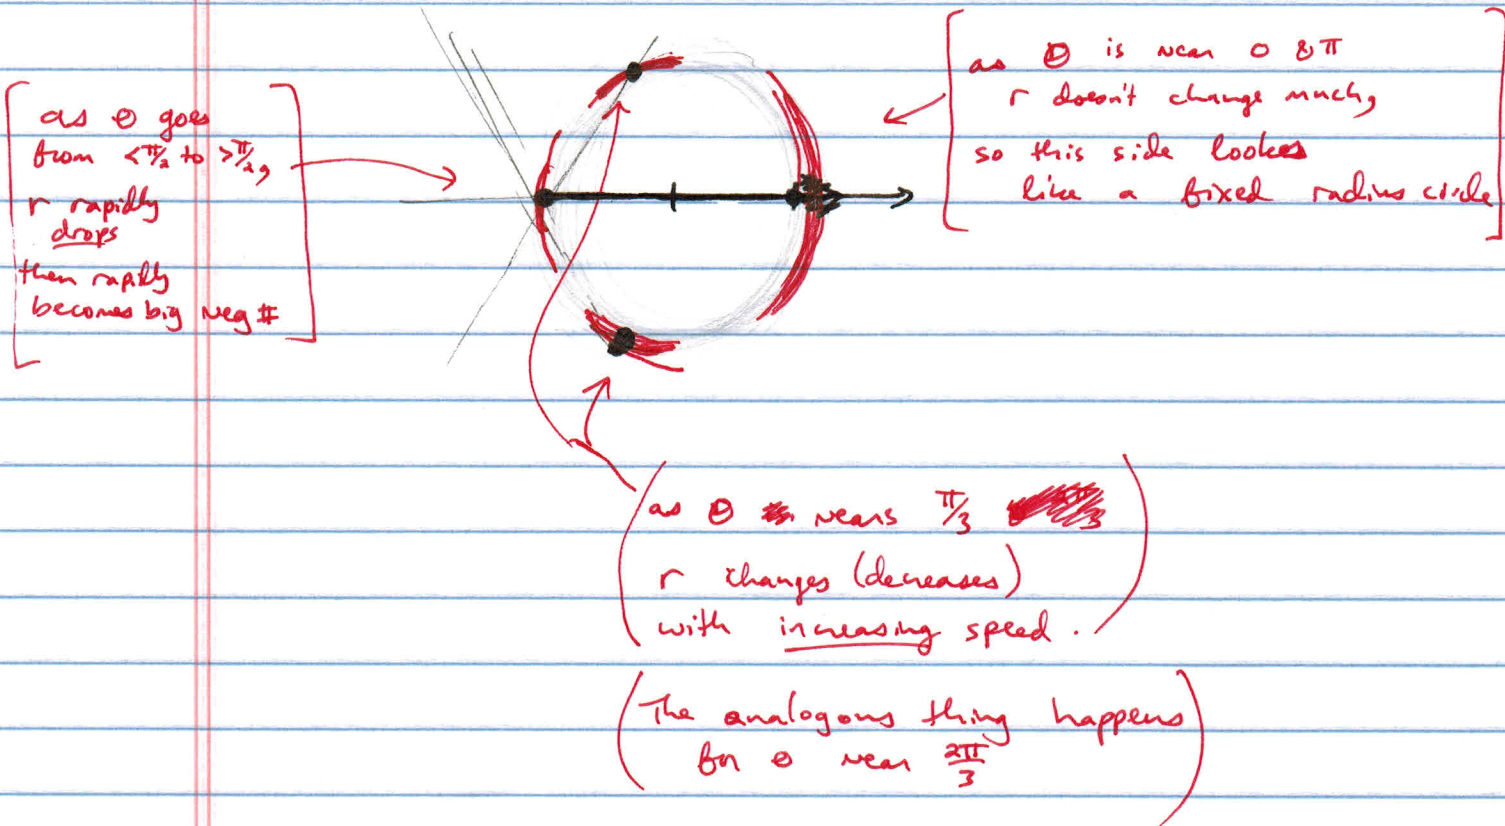 as θ goes
from <π/2 to >π/2,
r rapidly
drops
then rapidly
becomes big neg #
as θ is near 0 & π
r doesn't change much,
so this side looks
like a fixed radius circle
as θ nears π/3
r changes (decreases)
with increasing speed.
The analogous thing happens
for θ near 2π/3